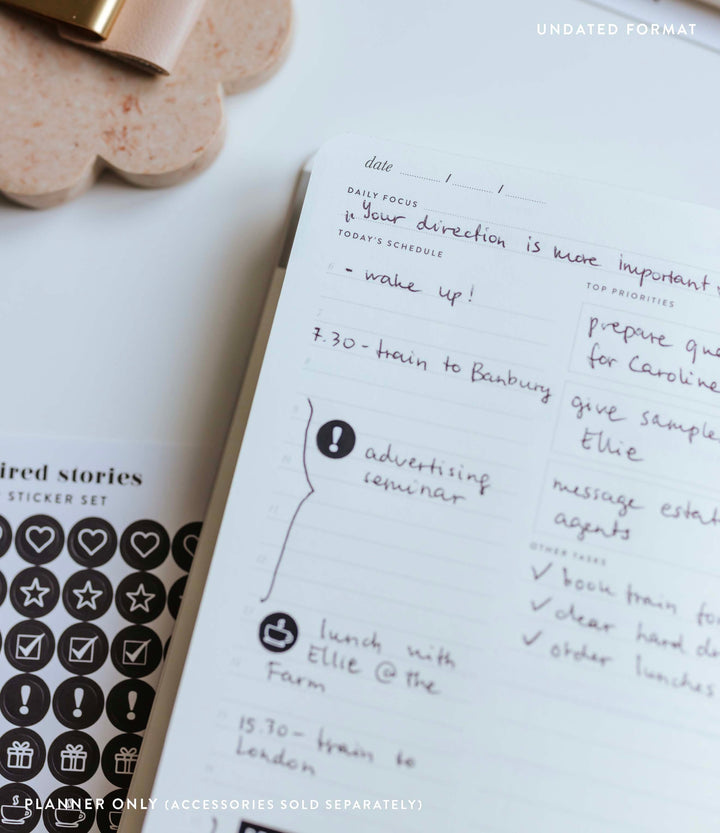 UNDATED FORMAT
date / /
DAILY FOCUS
"Your direction is more important
TODAY'S SCHEDULE
- wake up!
7.30 - train to Banbury
advertising
seminar
lunch with
Ellie @ the
Farm
15.30 - train to
London
TOP PRIORITIES
prepare
for Caroline
give
Ellie
message
agents
OTHER TASKS
✓ book train for
✓ clear hard
✓ order lunches
ired stories
STICKER SET
PLANNER ONLY (ACCESSORIES SOLD SEPARATELY)